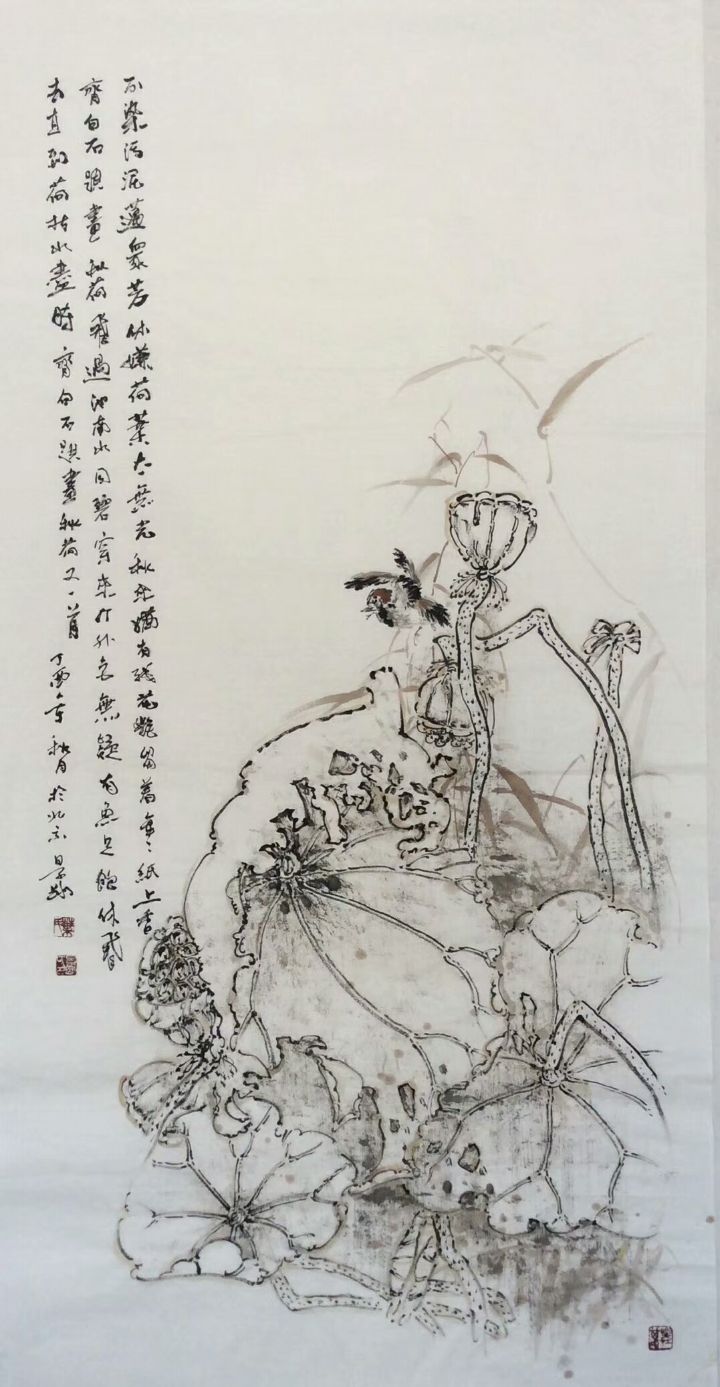 不染污泥邁衆芳休嫌荷葉太無光秋來猶有殘花艷留着年年紙上香
齊白石題畫秋荷飛過江南水碧來外無疑有魚足飽休飛
去直到荷枯水盡時齊白石題畫秋荷又一首丁酉年秋月於北京